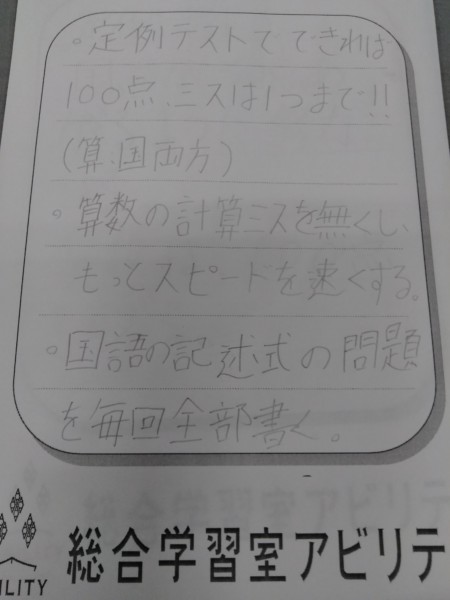 。定例テストでできれば
100点、ミスは1つまで!!
(算.国両方)
。算数の計算ミスを無くし、
もっとスピードを速くする。
。国語の記述式の問題
を毎回全部書く。
総合学習室アビリテ
ILITY